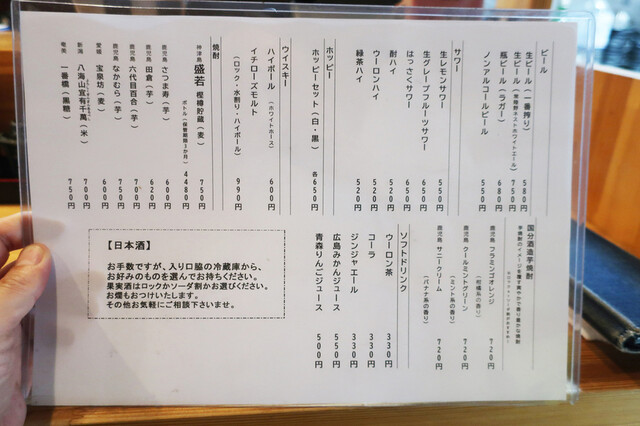 ビール
生ビール（一番搾り） 580
生ビール（常陸野ネストホワイトエール） 750
瓶ビール（ラガー） 680
ノンアルコールビール 550
サワー
生レモンサワー 550
生グレープフルーツサワー 650
はっさくサワー 650
酎ハイ 520
ウーロンハイ 520
緑茶ハイ 520
ホッピー
ホッピーセット（白・黒） 各650
ウイスキー
ハイボール（ホワイトホース） 600
イチローズモルト 990
（ロック・水割り・ハイボール）
焼酎
神津島 盛若 樫樽貯蔵（麦） 750
ボトル（保管期限3か月） 4480
鹿児島 さつま寿（芋） 600
鹿児島 田倉（芋） 620
鹿児島 六代目百合（芋） 700
鹿児島 なかむら（芋） 750
愛媛 宝泉坊（麦） 600
新潟 八海山宜有千萬（米） 700
奄美 一番橋（黒糖） 750
国分酒造芋焼酎
芋焼酎のイメージを覆す爽やかで香り豊かな焼酎
鹿児島 フラミンゴオレンジ 720
（柑橘系の香り）
鹿児島 クールミントグリーン 720
（ミント系の香り）
鹿児島 サニークリーム 720
（バナナ系の香り）
ソフトドリンク
ウーロン茶 330
コーラ 330
ジンジャエール 330
広島みかんジュース 550
青森りんごジュース 500
【日本酒】
お手数ですが、入り口脇の冷蔵庫から、
お好みのものを選んでお持ちください。
果実酒はロックかソーダ割かお選びください。
お燗もおつけいたします。
その他お気軽にご相談下さいませ。